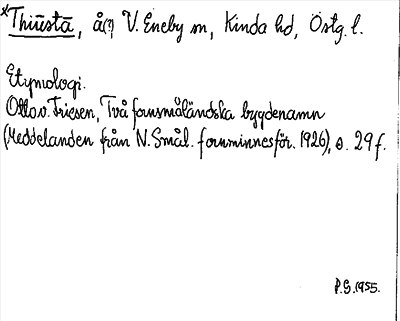 *Thiūstā, å(?) V. Eneby sn, Kinda hd, Östg. l.
Etymologi.
Otto v. Friesen, Två fornsmåländska bygdenamn
(Meddelanden från N. Smål. fornminnesför. 1926), s. 29 f.
P.S. 1955.